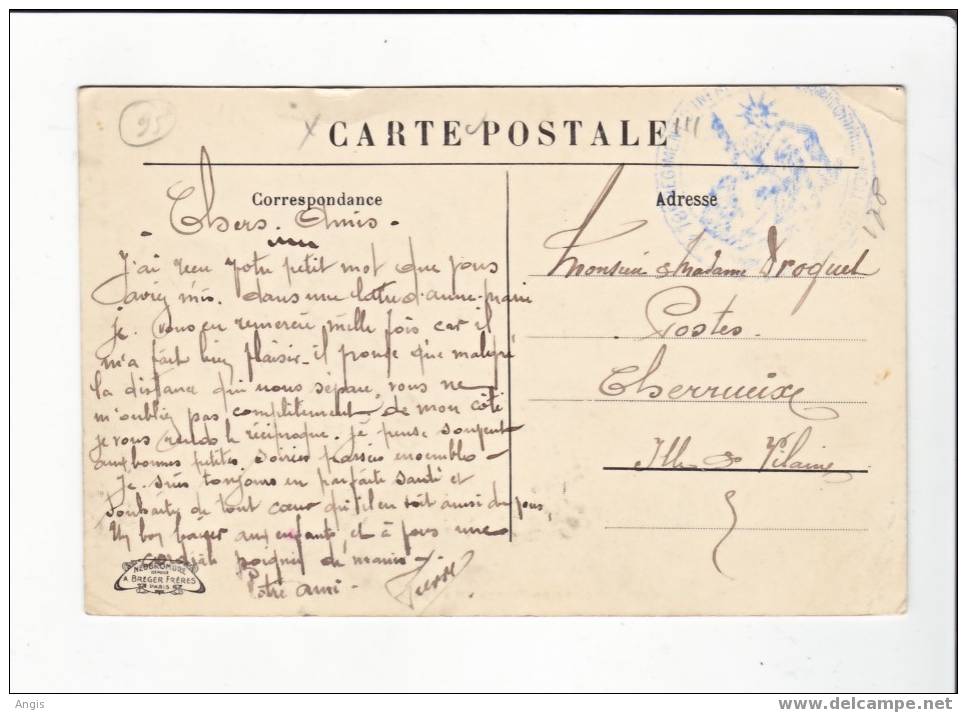 95
CARTE POSTALE
111
128
Correspondance
Adresse
Chers Amis.
J'ai reçu votre petit mot que vous
aviez mis dans une lettre d'anne-marie
je vous en remercie mille fois car il
m'a fait bien plaisir. il prouve que malgré
la distance qui nous sépare, vous ne
m'oubliez pas complitement de mon côté
je vous rends le réciproque. Je pense souvent
aux bonnes petites soirées passées ensembles -
Je suis toujours en parfaite santé et
souhaite de tout cœur qu'il en soit ainsi de vous,
Un bon baiser aux enfants, et à vous une
cordiale poignée de mains -
Votre ami -
Monsieur & Madame Droguet
Postes
Cherrueix
Ille & Vilaine
NEOBROMURE
A. BREGER FRÈRES
PARIS
Angis
www.delcampe.net